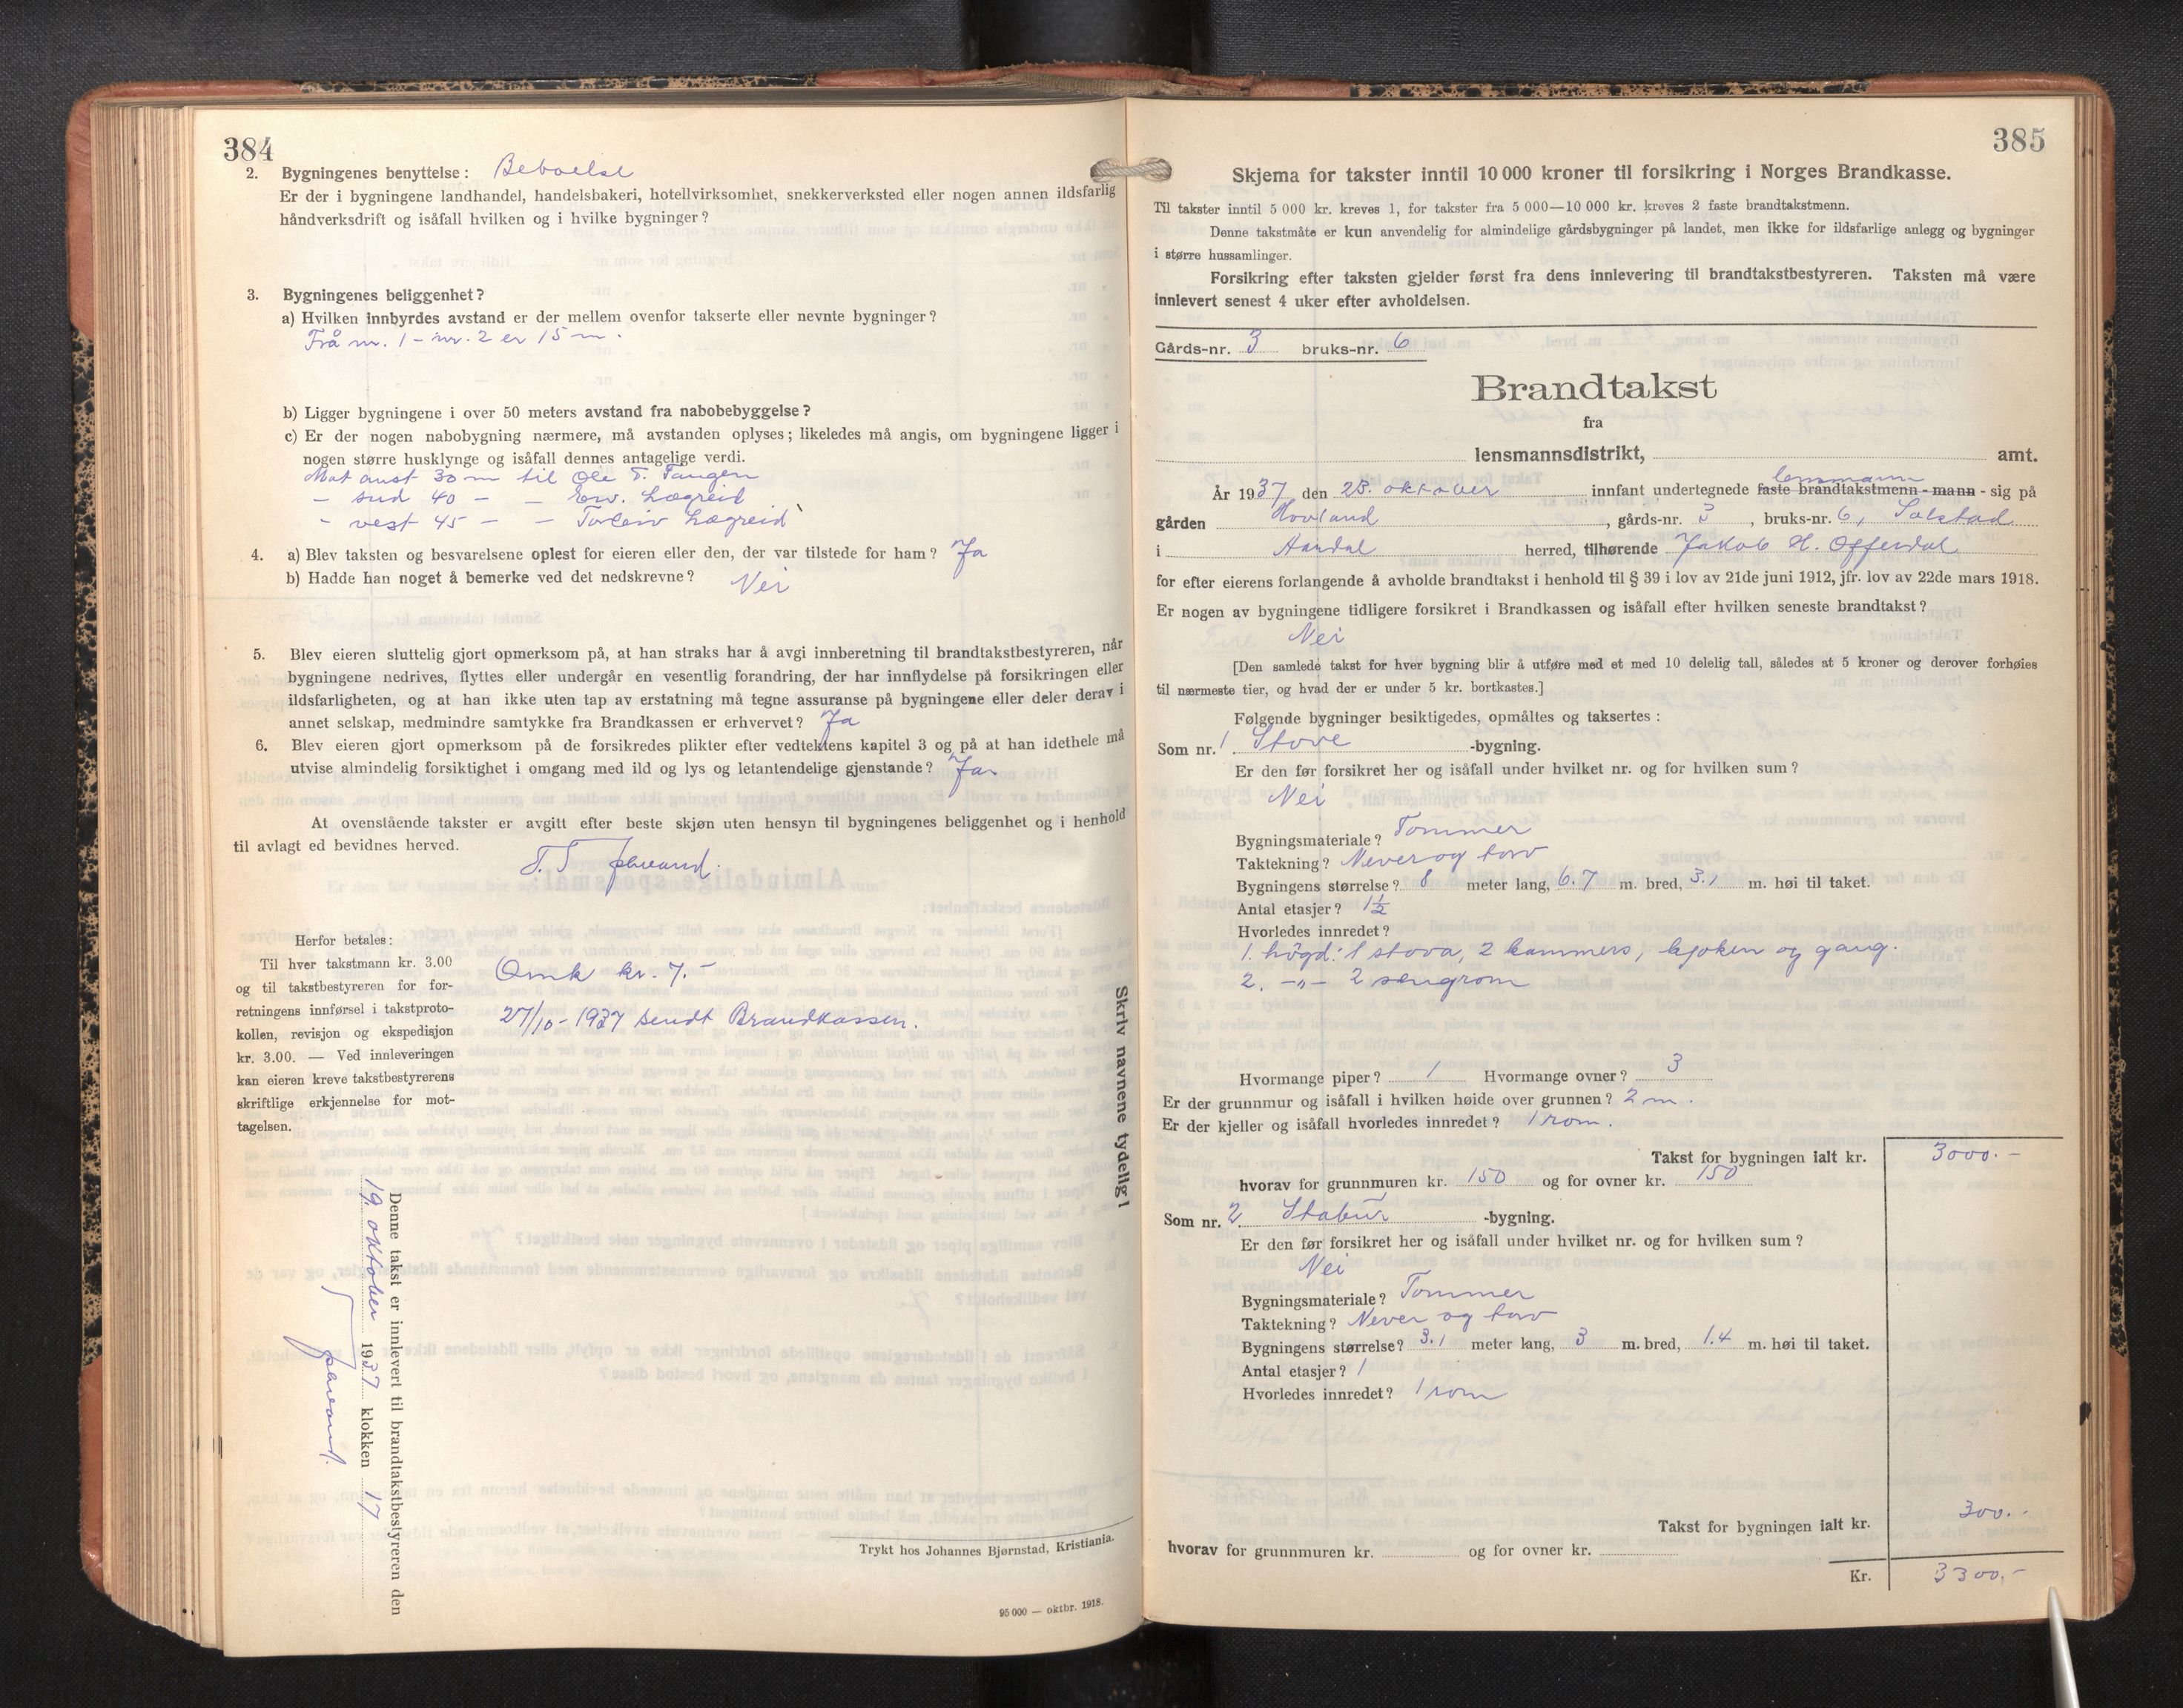 384
2. Bygningenes benyttelse: Beboelse
Er der i bygningene landhandel, handelsbakeri, hotellvirksomhet, snekkerverksted eller nogen annen ildsfarlig
håndverksdrift og isåfall hvilken og i hvilke bygninger?
3. Bygningenes beliggenhet?
a) Hvilken innbyrdes avstand er der mellem ovenfor takserte eller nevnte bygninger?
Frå nr. 1 - nr. 2 er 15 m.
b) Ligger bygningene i over 50 meters avstand fra nabobebyggelse?
c) Er der nogen nabobygning nærmere, må avstanden oplyses; likeledes må angis, om bygningene ligger i
nogen større husklynge og isåfall dennes antagelige verdi.
Mot aust 30 m til Ole T. Tangen
- sud 40 - - Edv. Lægreid
- vest 45 - - Torleiv Lægreid
4. a) Blev taksten og besvarelsene oplest for eieren eller den, der var tilstede for ham? Ja
b) Hadde han noget å bemerke ved det nedskrevne? Nei
5. Blev eieren sluttelig gjort opmerksom på, at han straks har å avgi innberetning til brandtakstbestyreren, når
bygningene nedrives, flyttes eller undergår en vesentlig forandring, der har innflydelse på forsikringen eller
ildsfarligheten, og at han ikke uten tap av erstatning må tegne assuranse på bygningene eller deler derav i
annet selskap, medmindre samtykke fra Brandkassen er erhvervet? Ja
6. Blev eieren gjort opmerksom på de forsikredes plikter efter vedtektens kapitel 3 og på at han idethele må
utvise almindelig forsiktighet i omgang med ild og lys og letantendelige gjenstande? Ja.
At ovenstående takster er avgitt efter beste skjøn uten hensyn til bygningenes beliggenhet og i henhold
til avlagt ed bevidnes herved.
Herfor betales:
Til hver takstmann kr. 3.00
og til takstbestyreren for for-
retningens innførsel i takstproto-
kollen, revisjon og ekspedisjon
kr. 3.00. — Ved innleveringen
kan eieren kreve takstbestyrerens
skriftlige erkjennelse for mot-
tagelsen.
Omk kr. 7.-
27/10-1937 sendt Brandkassen.
Denne takst er innlevert til brandtakstbestyreren den
19. oktober 1937 klokken 17
Skriv navnene tydelig!
Trykt hos Johannes Bjørnstad, Kristiania.
95 000 — oktbr. 1918.
385
Skjema for takster inntil 10 000 kroner til forsikring i Norges Brandkasse.
Til takster inntil 5 000 kr. kreves 1, for takster fra 5 000—10 000 kr. kreves 2 faste brandtakstmenn.
Denne takstmåte er kun anvendelig for almindelige gårdsbygninger på landet, men ikke for ildsfarlige anlegg og bygninger
i større hussamlinger.
Forsikring efter taksten gjelder først fra dens innlevering til brandtakstbestyreren. Taksten må være
innlevert senest 4 uker efter avholdelsen.
Gårds-nr. 3 bruks-nr. 6
Brandtakst
fra
lensmannsdistrikt, amt.
lensmann
År 1937, den 23. oktober innfant undertegnede faste brandtakstmenn - mann - sig på
gården Hovland, gårds-nr. 3, bruks-nr. 6, Solstad
i Aardal herred, tilhørende Jakob H. Offerdal
for efter eierens forlangende å avholde brandtakst i henhold til § 39 i lov av 21de juni 1912, jfr. lov av 22de mars 1918.
Er nogen av bygningene tidligere forsikret i Brandkassen og isåfall efter hvilken seneste brandtakst?
Nei
[Den samlede takst for hver bygning blir å utføre med et med 10 delelig tall, således at 5 kroner og derover forhøies
til nærmeste tier, og hvad der er under 5 kr. bortkastes.]
Følgende bygninger besiktigedes, opmåltes og taksertes:
Som nr. 1 Stove -bygning.
Er den før forsikret her og isåfall under hvilket nr. og for hvilken sum?
Nei
Bygningsmateriale? Tømmer
Taktekning? Never og torv
Bygningens størrelse? 8 meter lang, 6.7 m. bred, 3.1 m. høi til taket.
Antal etasjer? 1½
Hvorledes innredet?
1. høgd: 1 stova, 2 kammers, kjøken og gang.
2. -"- 2 sengrom
Hvormange piper? 1 Hvormange ovner? 3
Er der grunnmur og isåfall i hvilken høide over grunnen? 2 m.
Er der kjeller og isåfall hvorledes innredet? 1 rom.
Takst for bygningen ialt kr. 3000.-
hvorav for grunnmuren kr. 150 og for ovner kr. 150
Som nr. 2 Stabur -bygning.
Er den før forsikret her og isåfall under hvilket nr. og for hvilken sum?
Nei
Bygningsmateriale? Tømmer
Taktekning? Never og torv
Bygningens størrelse? 3.1 meter lang, 3 m. bred, 1.4 m. høi til taket.
Antal etasjer? 1
Hvorledes innredet? 1 rom
Takst for bygningen ialt kr. 300.-
hvorav for grunnmuren kr. og for ovner kr.
Kr. 3300.-